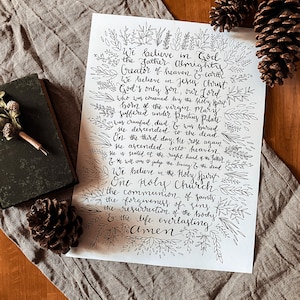 We believe in God
the Father Almighty
Creator of heaven & earth
We believe in Jesus Christ
God's only son, our Lord
who was conceived by the Holy Spirit
born of the virgin Mary
suffered under Pontius Pilate
was crucified, died & was buried
He descended to the dead
On the third day He rose again
He ascended into heaven
He is seated at the right hand of the Father
& He will come to judge the living & the dead
We believe in the Holy Spirit
One Holy Church
the communion of saints
the forgiveness of sins
the resurrection of the body
& the life everlasting
Amen